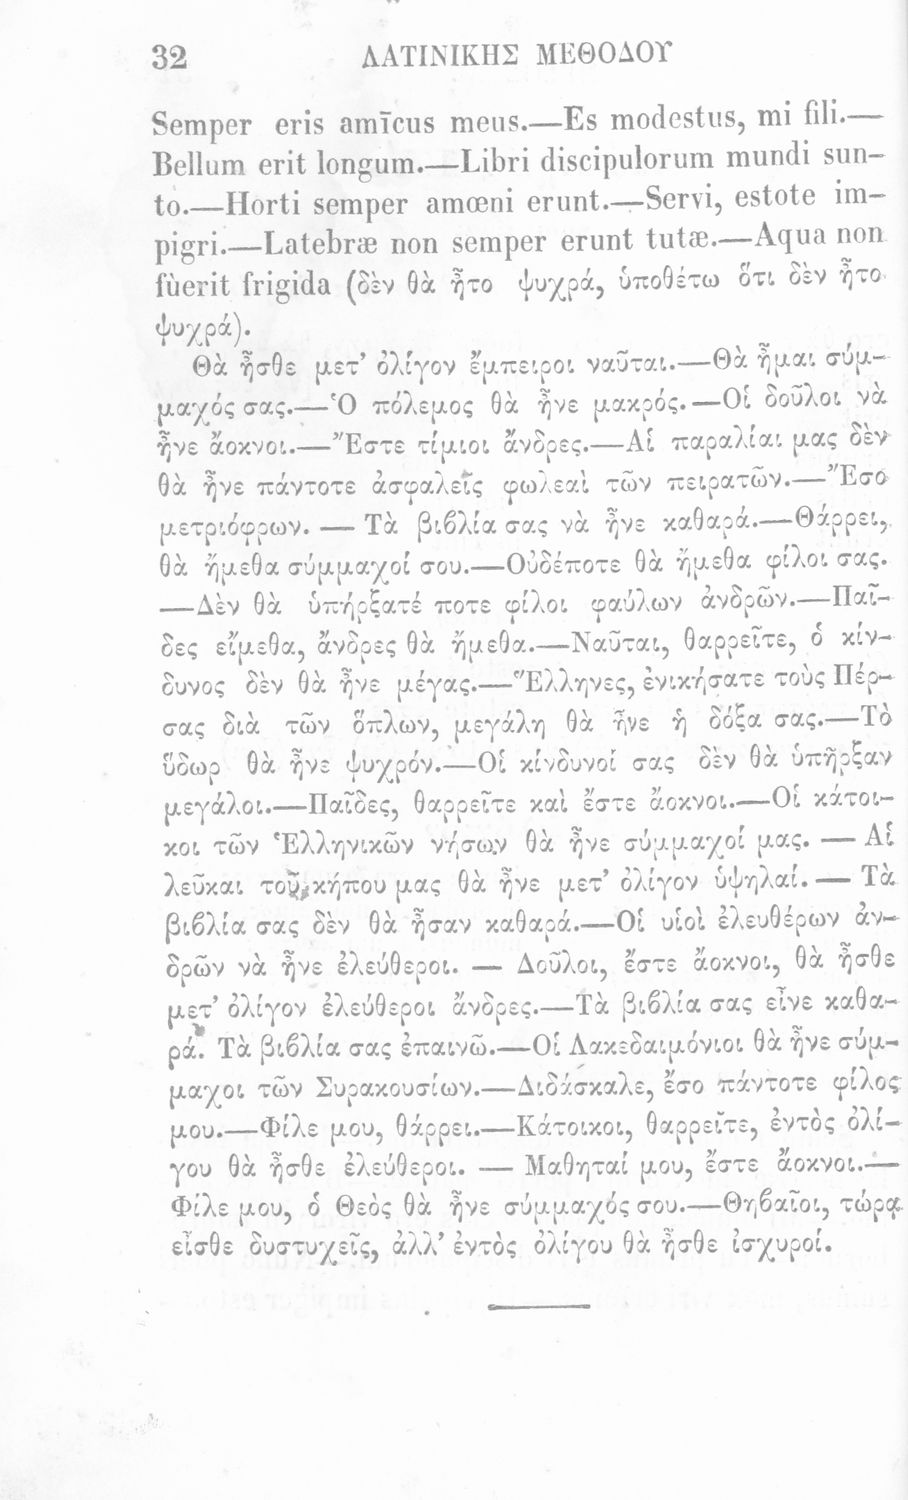 32 ΛΑΤΙΝΙΚΗΣ ΜΕΘΟΔΟΥ
Semper eris amīcus meus.—Es modestus, mi fili.—
Bellum erit longum.—Libri discipulorum mundi sun-
to.—Horti semper amœni erunt.—Servi, estote im-
pigri.—Latebræ non semper erunt tutæ.—Aqua non
fuerit frigida (δὲν θὰ ἦτο ψυχρά, ὑποθέτω ὅτι δὲν ἦτο
ψυχρά).
Θὰ ἦσθε μετ’ ὀλίγον ἔμπειροι ναῦται.—Θὰ ἦμαι σύμ-
μαχός σας.—Ὁ πόλεμος θὰ ἦνε μακρός.—Οἱ δοῦλοι νὰ
ἦνε ἄοκνοι.—Ἔστε τίμιοι ἄνδρες.—Αἱ παραλίαι μας δὲν
θὰ ἦνε πάντοτε ἀσφαλεῖς φωλεαὶ τῶν πειρατῶν.—Ἔσο
μετριόφρων. — Τὰ βιβλία σας νὰ ἦνε καθαρά.—Θάρρει,
θὰ ἤμεθα σύμμαχοί σου.—Οὐδέποτε θὰ ἤμεθα φίλοι σας.
—Δὲν θὰ ὑπήρξατέ ποτε φίλοι φαύλων ἀνδρῶν.—Παῖ-
δες εἴμεθα, ἄνδρες θὰ ἤμεθα.—Ναῦται, θαρρεῖτε, ὁ κίν-
δυνος δὲν θὰ ἦνε μέγας.—Ἕλληνες, ἐνικήσατε τοὺς Πέρ-
σας διὰ τῶν ὅπλων, μεγάλη θὰ ἦνε ἡ δόξα σας.—Τὸ
ὕδωρ θὰ ἦνε ψυχρόν.—Οἱ κίνδυνοί σας δὲν θὰ ὑπῆρξαν
μεγάλοι.—Παῖδες, θαρρεῖτε καὶ ἔστε ἄοκνοι.—Οἱ κάτοι-
κοι τῶν Ἑλληνικῶν νήσων θὰ ἦνε σύμμαχοί μας. — Αἱ
λεῦκαι τοῦ κήπου μας θὰ ἦνε μετ’ ὀλίγον ὑψηλαί. — Τὰ
βιβλία σας δὲν θὰ ἦσαν καθαρά.—Οἱ υἱοὶ ἐλευθέρων ἀν-
δρῶν νὰ ἦνε ἐλεύθεροι. — Δοῦλοι, ἔστε ἄοκνοι, θὰ ἦσθε
μετ’ ὀλίγον ἐλεύθεροι ἄνδρες.—Τὰ βιβλία σας εἶνε καθα-
ρά. Τὰ βιβλία σας ἐπαινῶ.—Οἱ Λακεδαιμόνιοι θὰ ἦνε σύμ-
μαχοι τῶν Συρακουσίων.—Διδάσκαλε, ἔσο πάντοτε φίλος
μου.—Φίλε μου, θάρρει.—Κάτοικοι, θαρρεῖτε, ἐντὸς ὀλί-
γου θὰ ἦσθε ἐλεύθεροι. — Μαθηταί μου, ἔστε ἄοκνοι.—
Φίλε μου, ὁ Θεὸς θὰ ἦνε σύμμαχός σου.—Θηβαῖοι, τώρα
εἶσθε δυστυχεῖς, ἀλλ’ ἐντὸς ὀλίγου θὰ ἦσθε ἰσχυροί.